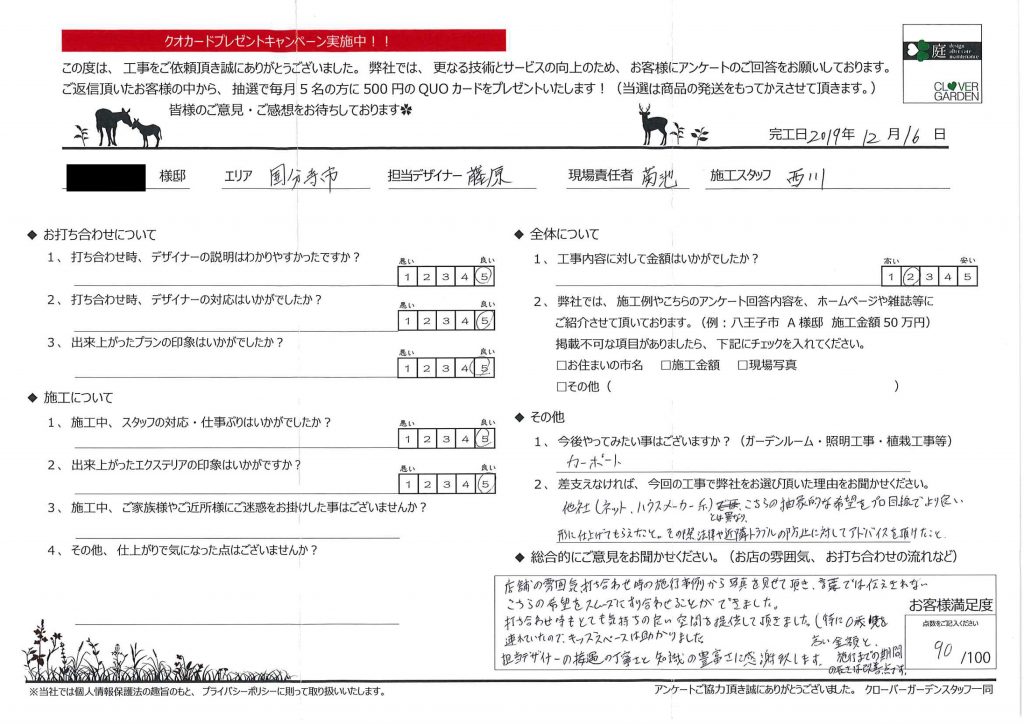 クオカードプレゼントキャンペーン実施中！！
この度は、工事をご依頼頂き誠にありがとうございました。弊社では、更なる技術とサービスの向上のため、お客様にアンケートのご回答をお願いしております。
ご返信頂いたお客様の中から、抽選で毎月５名の方に500円のQUOカードをプレゼントいたします！（当選は商品の発送をもってかえさせて頂きます。）
皆様のご意見・ご感想をお待ちしております✿
庭 design aftercare maintenance
CLOVER GARDEN
完工日2019年 12月16日
様邸 エリア 国分寺市 担当デザイナー 藤原 現場責任者 菊池 施工スタッフ 西川
◆ お打ち合わせについて
１、打ち合わせ時、デザイナーの説明はわかりやすかったですか？
悪い 良い
1 2 3 4 5
２、打ち合わせ時、デザイナーの対応はいかがでしたか？
悪い 良い
1 2 3 4 5
３、出来上がったプランの印象はいかがでしたか？
悪い 良い
1 2 3 4 5
◆ 施工について
１、施工中、スタッフの対応・仕事ぶりはいかがでしたか？
悪い 良い
1 2 3 4 5
２、出来上がったエクステリアの印象はいかがですか？
悪い 良い
1 2 3 4 5
３、施工中、ご家族様やご近所様にご迷惑をお掛けした事はございませんか？
４、その他、仕上がりで気になった点はございませんか？
◆ 全体について
１、工事内容に対して金額はいかがでしたか？
高い 安い
1 2 3 4 5
２、弊社では、施工例やこちらのアンケート回答内容を、ホームページや雑誌等に
ご紹介させて頂いております。（例：八王子市 A様邸 施工金額50万円）
掲載不可な項目がありましたら、下記にチェックを入れてください。
□お住まいの市名 □施工金額 □現場写真
□その他（ ）
◆ その他
１、今後やってみたい事はございますか？（ガーデンルーム・照明工事・植栽工事等）
カーポート
２、差支えなければ、今回の工事で弊社をお選び頂いた理由をお聞かせください。
他社（ネット、ハウスメーカー系）とは異なり、こちらの抽象的な希望をプロ目線でより良い
形に仕上げてもらえたこと。その際法律や近隣トラブルの防止に対してアドバイスを頂けたこと
◆ 総合的にご意見をお聞かせください。（お店の雰囲気、お打ち合わせの流れなど）
店舗の雰囲気、打ち合わせ時の施行事例から写真を見せて頂き、言葉では伝えきれない
こちらの希望をスムーズにすり合わせることができました。
打ち合わせ時もとても気持ちの良い空間を提供して頂きました（特に0歳児を
連れていたので、キッズスペースは助かりました
担当デザイナーの接遇の丁寧さと知識の豊富さに感謝致します。
高い金額と、
施行までの期間
の長さは改善点です。
お客様満足度
点数をご記入ください
90 /100
※当社では個人情報保護法の趣旨のもと、プライバシーポリシーに則って取り扱いいたします。
アンケートご協力頂き誠にありがとうございました。クローバーガーデンスタッフ一同